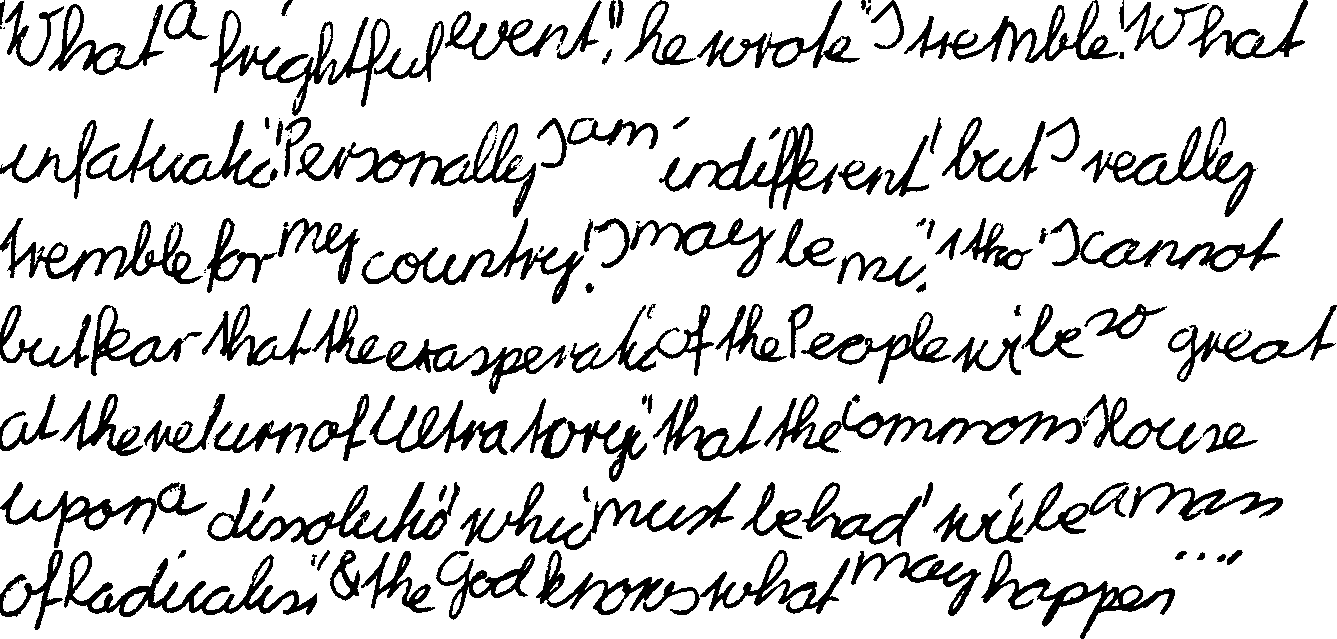 "What a frightful event", he wrote "I tremble! What
infatuati", "Personally I am indifferent, but I really
tremble for my country! I may be mi", "tho' I cannot
but fear that the exasperati of the People wil be so great
at the return of Ultra Toryi", that the Commons House
upon a dissoluti", whic must be had, wil be a mass
of Radicalis", & the God knows what may happen ..."